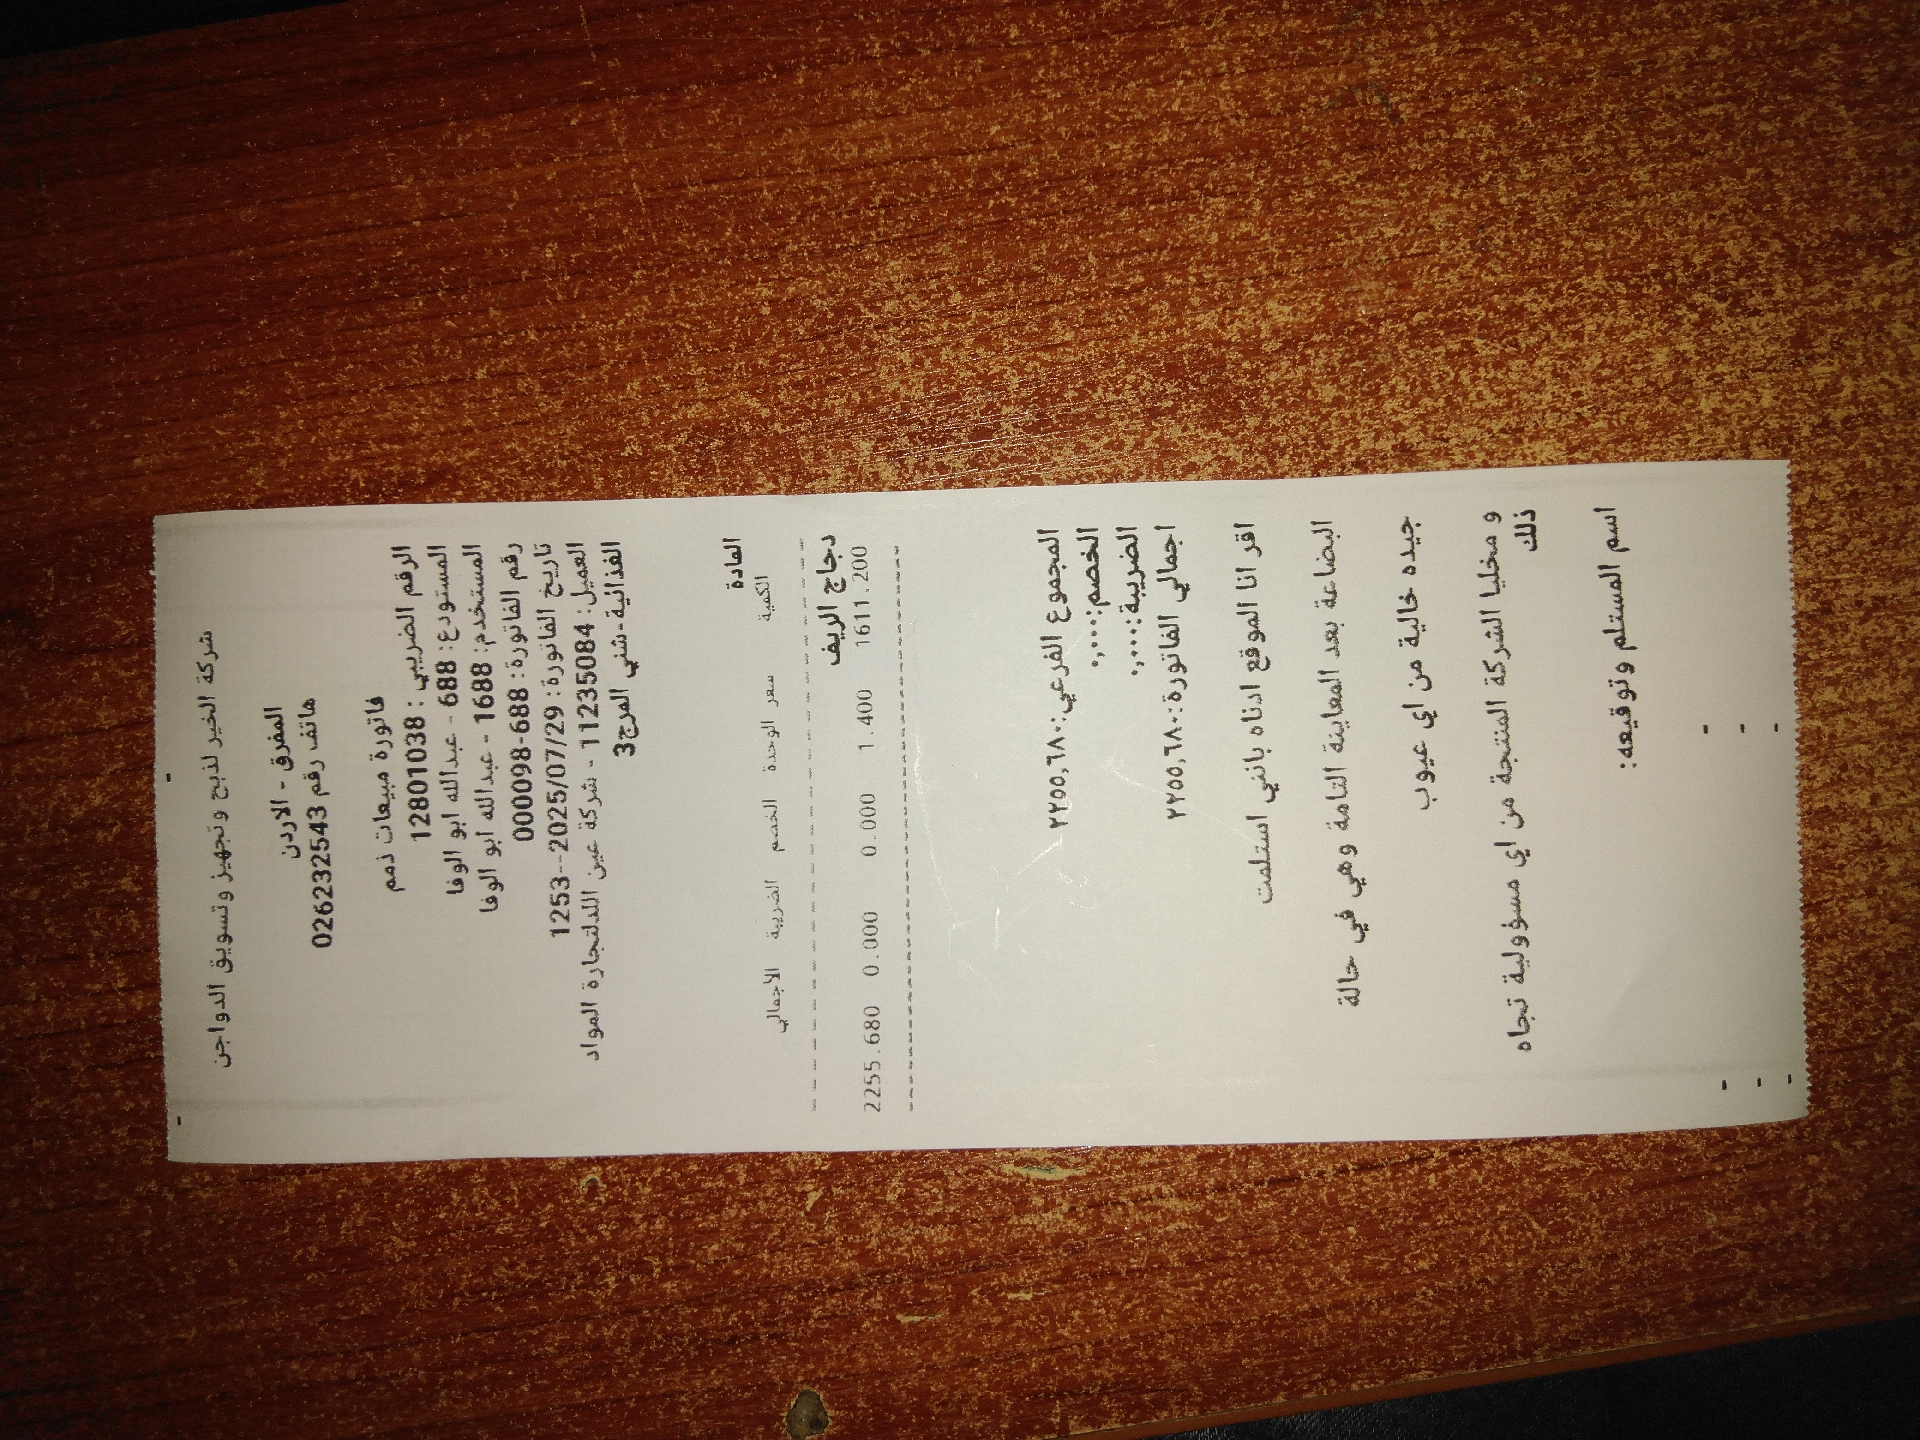 شركة الخير لذبح وتجهيز وتسويق الدواجن
المفرق - الاردن
هاتف رقم 026232543
فاتورة مبيعات ذمم
الرقم الضريبي : 12801038
المستودع: 688 - عبدالله ابو الوفا
المستخدم: 1688 - عبدالله ابو الوفا
رقم الفاتورة : 688-000098
تاريخ الفاتورة: 2025/07/29--1253
العميل: 11235084 - شركة عين اللدلتجارة المواد
الغذائية-شني المرج3
المادة
الكمية سعر الوحدة الخصم الضريبة الاجمالي
دجاج الريف
1611.200 1.400 0.000 0.000 2255.680
المجموع الفرعي:٢٢٥٥,٦٨٠
الخصم:٠,٠٠٠
الضريبة:٠,٠٠٠
اجمالي الفاتورة:٢٢٥٥,٦٨٠
اقر انا الموقع ادناه بانني استلمت
البضاعة بعد المعاينة التامة وهي في حالة
جيده خالية من اي عيوب
و مخليا الشركة المنتجة من اي مسؤولية تجاه
ذلك
اسم المستلم وتوقيعه: